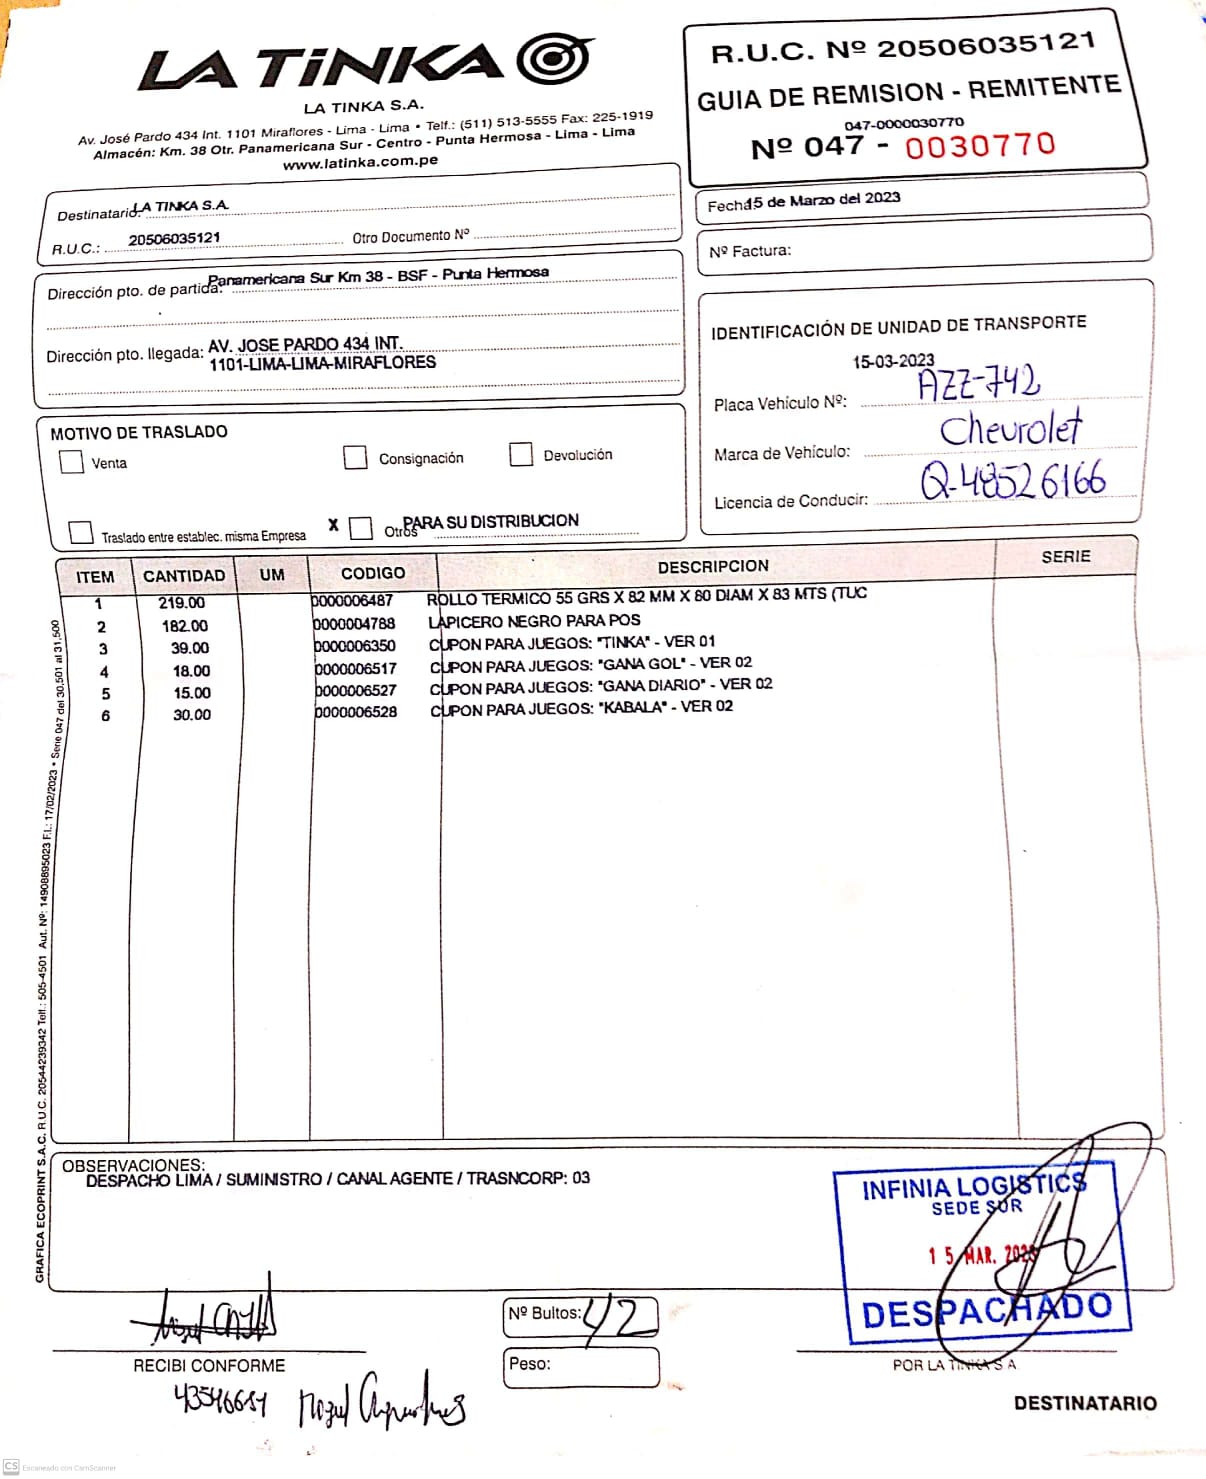 LA TiNKA
LA TINKA S.A.
Av. José Pardo 434 Int. 1101 Miraflores - Lima - Lima • Telf.: (511) 513-5555 Fax: 225-1919
Almacén: Km. 38 Otr. Panamericana Sur - Centro - Punta Hermosa - Lima - Lima
www.latinka.com.pe
R.U.C. Nº 20506035121
GUIA DE REMISION - REMITENTE
047-0000030770
Nº 047 - 0030770
Destinatario: LA TINKA S.A.
R.U.C.: 20506035121 Otro Documento Nº
Fecha: 15 de Marzo del 2023
Nº Factura:
Dirección pto. de partida: Panamericana Sur Km 38 - BSF - Punta Hermosa
Dirección pto. llegada: AV. JOSE PARDO 434 INT.
1101-LIMA-LIMA-MIRAFLORES
IDENTIFICACIÓN DE UNIDAD DE TRANSPORTE
15-03-2023
Placa Vehículo Nº: AZZ-742
Marca de Vehículo: Chevrolet
Licencia de Conducir: Q-48526166
MOTIVO DE TRASLADO
Venta Consignación Devolución
Traslado entre establec. misma Empresa X Otros PARA SU DISTRIBUCION
ITEM CANTIDAD UM CODIGO DESCRIPCION SERIE
1 219.00 0000006487 ROLLO TERMICO 55 GRS X 82 MM X 80 DIAM X 83 MTS (TUC
2 182.00 0000004788 LAPICERO NEGRO PARA POS
3 39.00 0000006350 CUPON PARA JUEGOS: "TINKA" - VER 01
4 18.00 0000006517 CUPON PARA JUEGOS: "GANA GOL" - VER 02
5 15.00 0000006527 CUPON PARA JUEGOS: "GANA DIARIO" - VER 02
6 30.00 0000006528 CUPON PARA JUEGOS: "KABALA" - VER 02
GRAFICA ECOPRINT S.A.C. R.U.C. 20544239342 Telf.: 505-4501 Aut. Nº: 14908895023 F.I.: 17/02/2023 • Serie 047 del 30,501 al 31,500
OBSERVACIONES:
DESPACHO LIMA / SUMINISTRO / CANAL AGENTE / TRASNCORP: 03
INFINIA LOGISTICS
SEDE SUR
15 MAR. 2023
DESPACHADO
Nº Bultos: 42
Peso:
RECIBI CONFORME
POR LA TINKA S A
DESTINATARIO
CS Escaneado con CamScanner